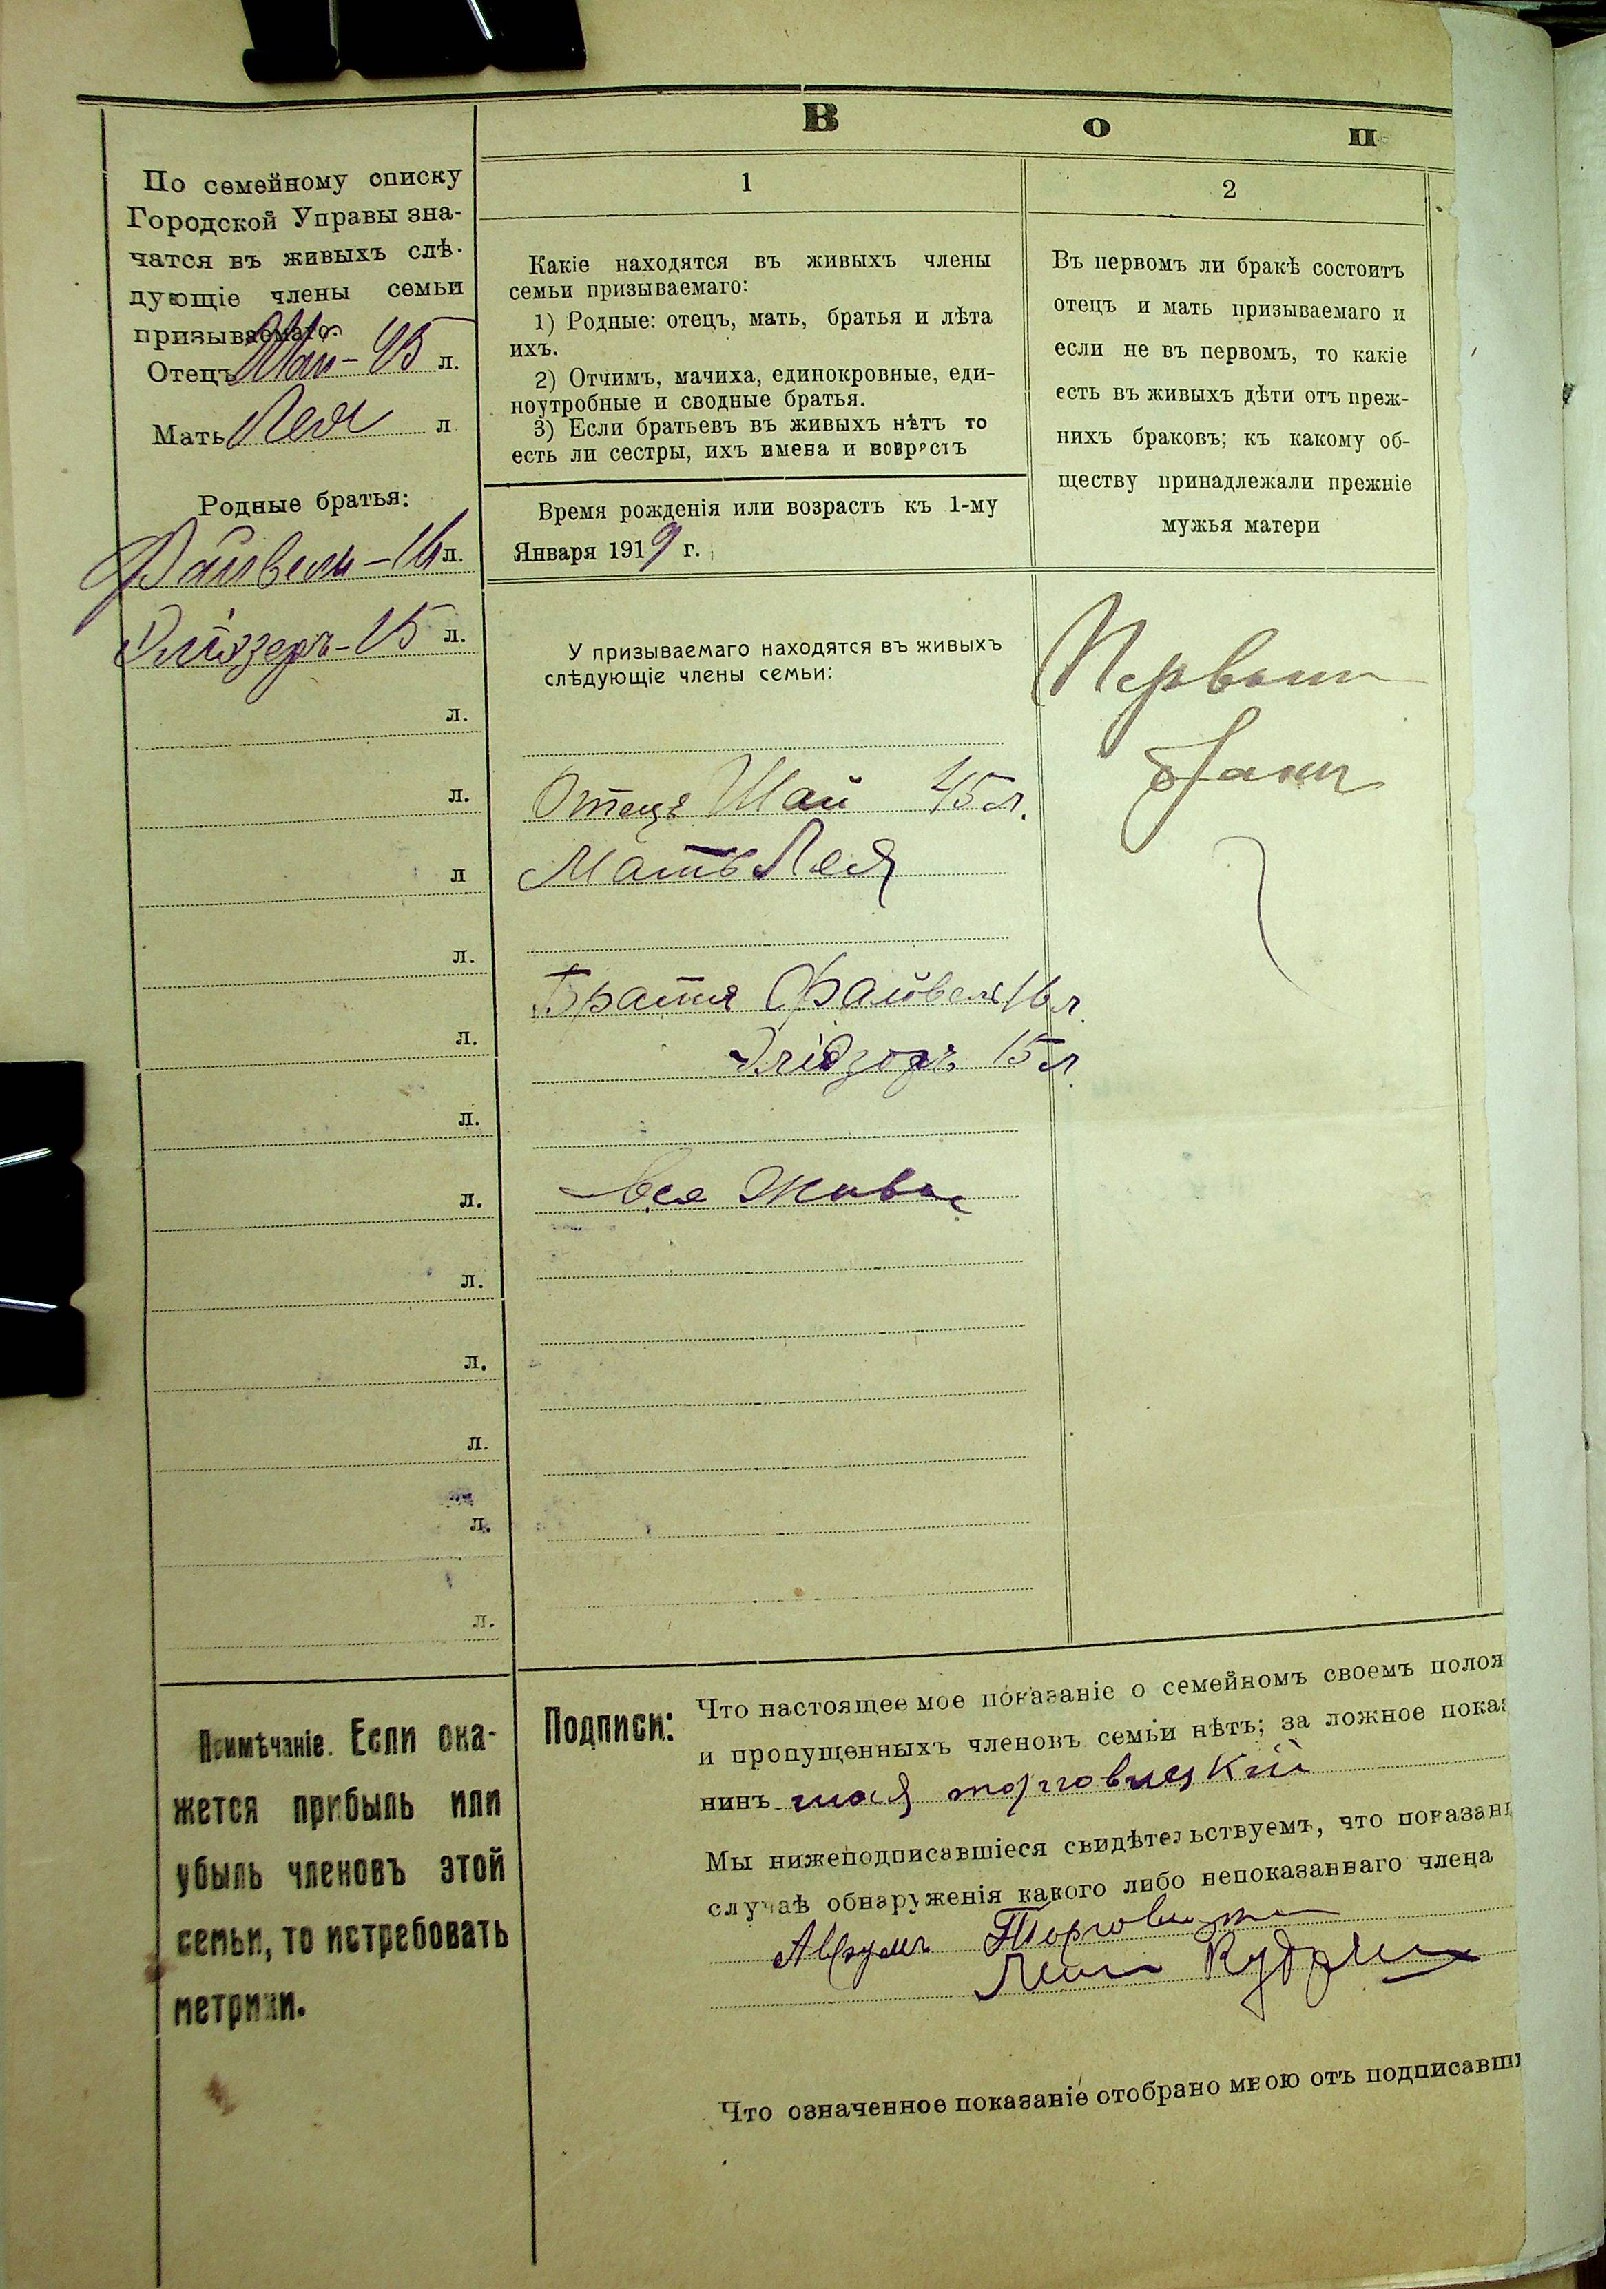 В о п
По семейному списку
Городской Управы зна-
чатся въ живыхъ слѣ-
дующіе члены семьи
призываемаго:
Отецъ Шай - 45 л.
Мать Лея л.
Родные братья:
Файвель - 16 л.
Эліозеръ - 15 л.
л.
л.
л
л.
л.
л.
л.
л.
л.
л.
л.
л.
1
Какіе находятся въ живыхъ члены
семьи призываемаго:
1) Родные: отецъ, мать, братья и лѣта
ихъ.
2) Отчимъ, мачиха, единокровные, еди-
ноутробные и сводные братья.
3) Если братьевъ въ живыхъ нѣтъ то
есть ли сестры, ихъ имена и возрастъ
Время рожденія или возрастъ къ 1-му
Января 1919 г.
У призываемаго находятся въ живыхъ
слѣдующіе члены семьи:
Отецъ Шай 45 л.
Мать Лея
Братья Файвель 16 л.
15 л.
2
Въ первомъ ли бракѣ состоитъ
отецъ и мать призываемаго и
если не въ первомъ, то какіе
есть въ живыхъ дѣти отъ преж-
нихъ браковъ; къ какому об-
ществу принадлежали прежніе
мужья матери
Примѣчаніе. Если ока-
жется прибыль или
убыль членовъ этой
семьи, то истребовать
метрики.
Подписи:
Что настоящее мое показаніе о семейномъ своемъ полож
и пропущенныхъ членовъ семьи нѣтъ; за ложное показ
нинъ шая торговицкій
Мы нижеподписавшіеся свидѣтельствуемъ, что показані
случаѣ обнаруженія какого либо непоказаннаго члена
Аврумъ
Что означенное показаніе отобрано мною отъ подписавши